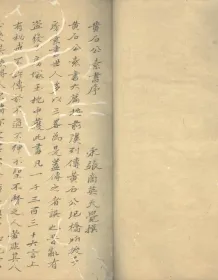 黄石公素書序
宋張商英天覺撰
黄石公素書六篇按前漢列傳黄石公圯橋所授子
房素書世人多以三畧為是蓋傳之者誤也晉亂有
盜發子房塚玉枕中獲此書凡一千三百三十六言上
有秘戒不許傳於不道不神不聖不賢之人若非其